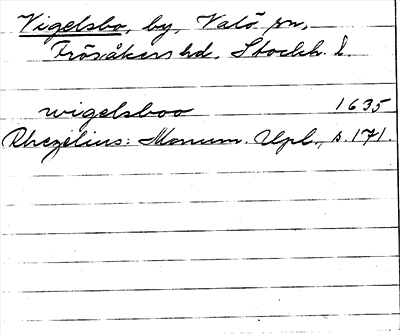 Vigelsbo, by, Valö sn,
Frösåkers hd. Stockh. l.
wigelsboo 1635
Rhezelius: Monum. Upl., s. 171.